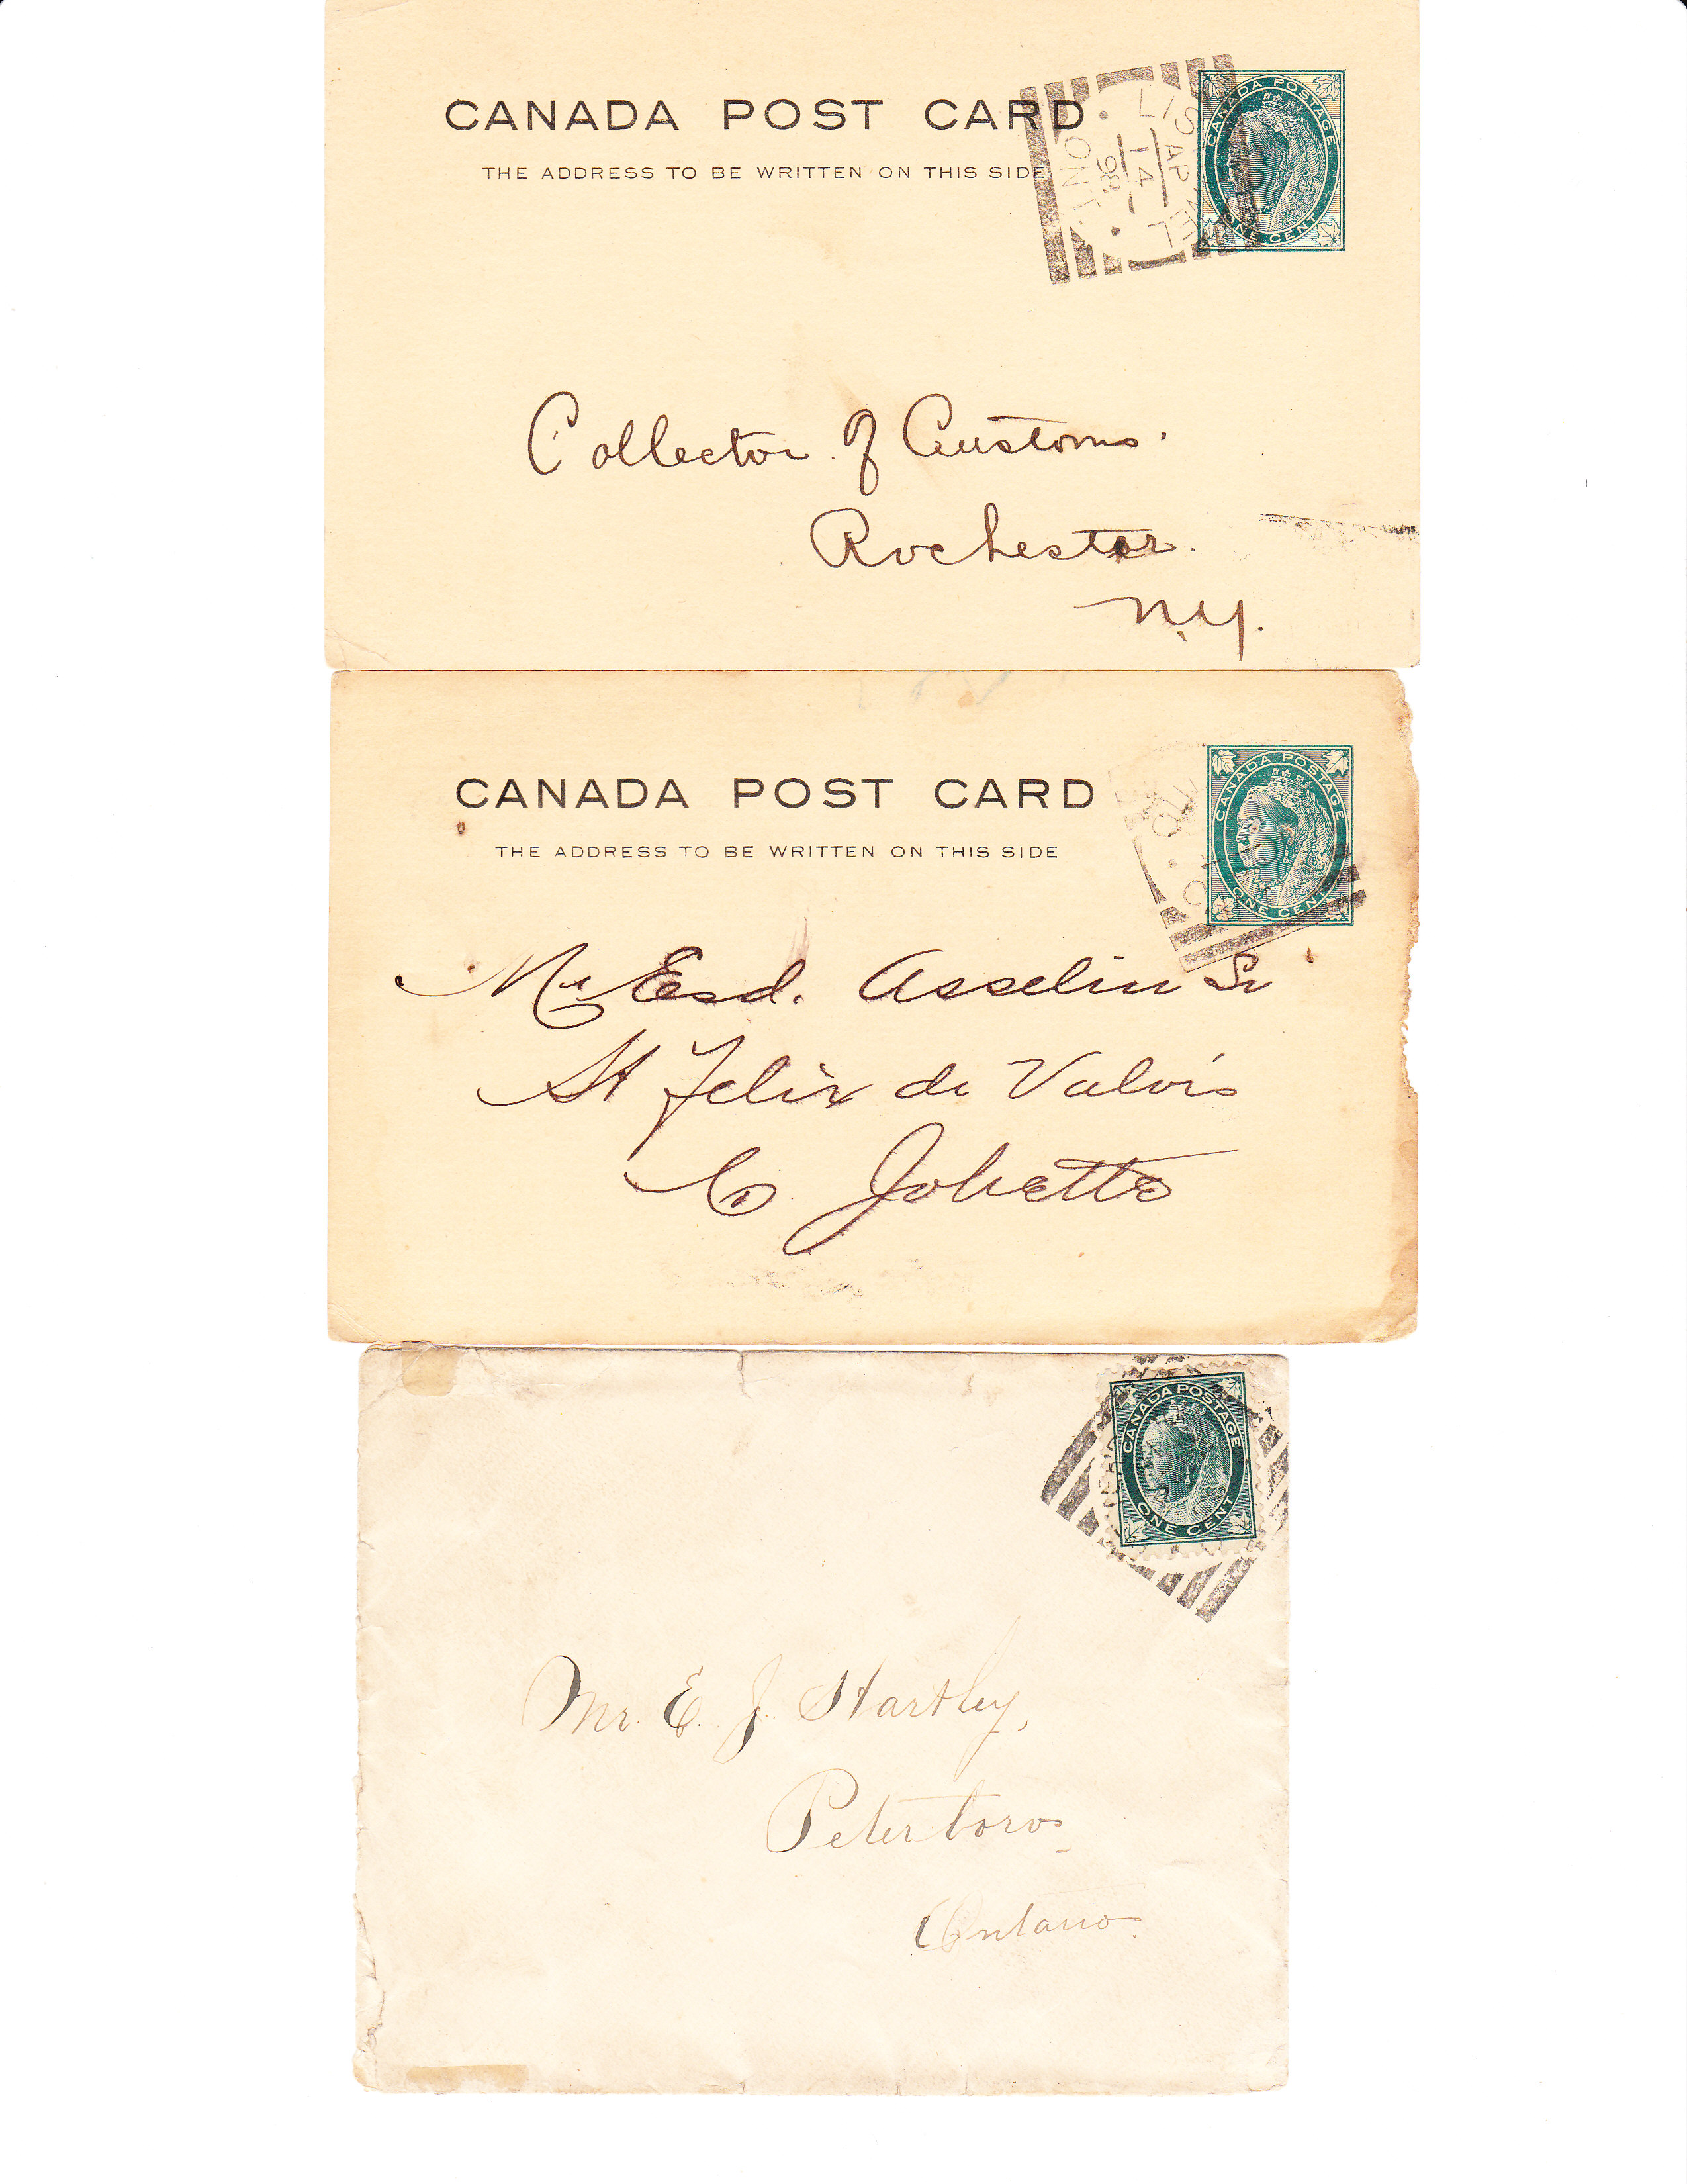 CANADA POST CARD
THE ADDRESS TO BE WRITTEN ON THIS SIDE
CANADA POSTAGE
ONE CENT
AP 14
98
ONT.
Collector of Customs.
Rochester.
N.Y.
CANADA POST CARD
THE ADDRESS TO BE WRITTEN ON THIS SIDE
CANADA POSTAGE
ONE CENT
Mr Esd. Asselin Sr
St Felix de Valois
Co Joliette
CANADA POSTAGE
ONE CENT
Mr. E. J. Hartley,
Peterboro
Ontario.